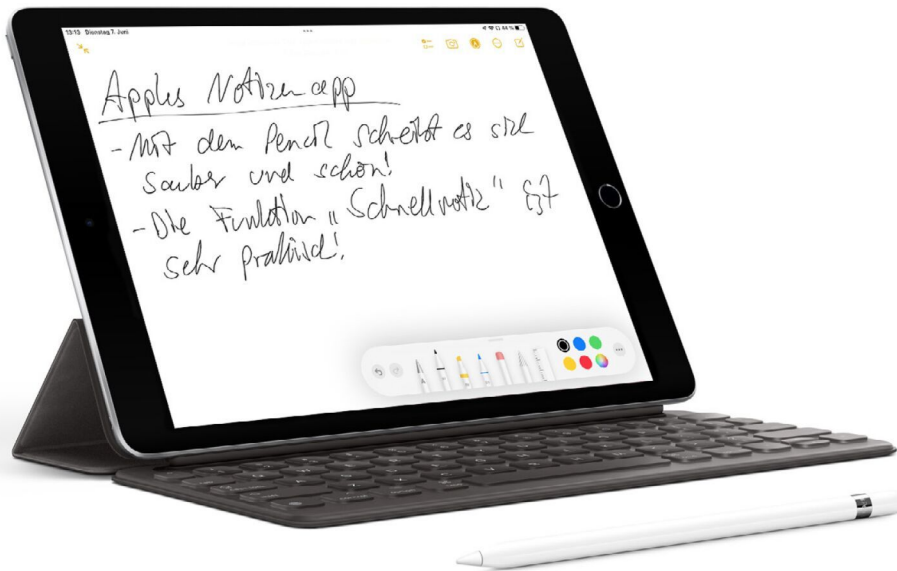 13:13 Dienstag 7. Juni
44 %
Apples Notizenapp
- Mit dem Pencil schreibt es sich
sauber und schön!
- Die Funktion "Schnellnotiz" ist
sehr praktisch!